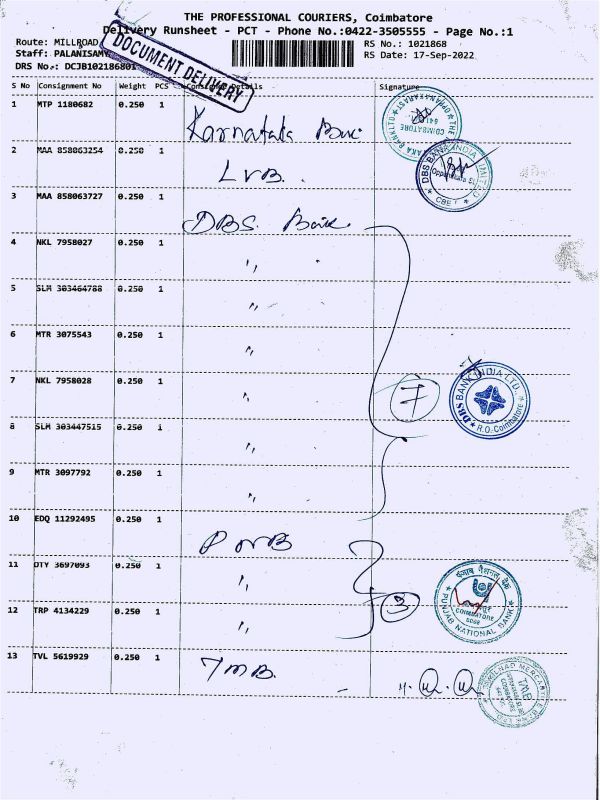 THE PROFESSIONAL COURIERS, Coimbatore
Delivery Runsheet - PCT - Phone No.:0422-3505555 - Page No.:1
Route: MILLROAD RS No.: 1021868
Staff: PALANISAMY RS Date: 17-Sep-2022
DRS No.: DCJB102186801
DOCUMENT DELIVERY
S No Consignment No Weight PCS Consignee Details Signature
1 MTP 1180682 0.250 1 Karnataka Bank
2 MAA 858063254 0.250 1 LVB.
DBS BANK INDIA LIMITED
CBE
3 MAA 858063727 0.250 1 DBS. Bank
4 NKL 7958027 0.250 1 "
5 SLM 303464788 0.250 1 "
6 MTR 3075543 0.250 1 "
7 NKL 7958028 0.250 1 " 7
DBS BANK INDIA LTD.
R.O. Coimbatore
8 SLM 303447515 0.250 1 "
9 MTR 3097792 0.250 1 "
10 EDQ 11292495 0.250 1 PNB
11 OTY 3697093 0.250 1 "
12 TRP 4134229 0.250 1 " 3
पंजाब नैशनल बैंक
COIMBATORE
PUNJAB NATIONAL BANK
13 TVL 5619929 0.250 1 TMB.
TAMILNAD MERCANTILE BANK LTD
TMB